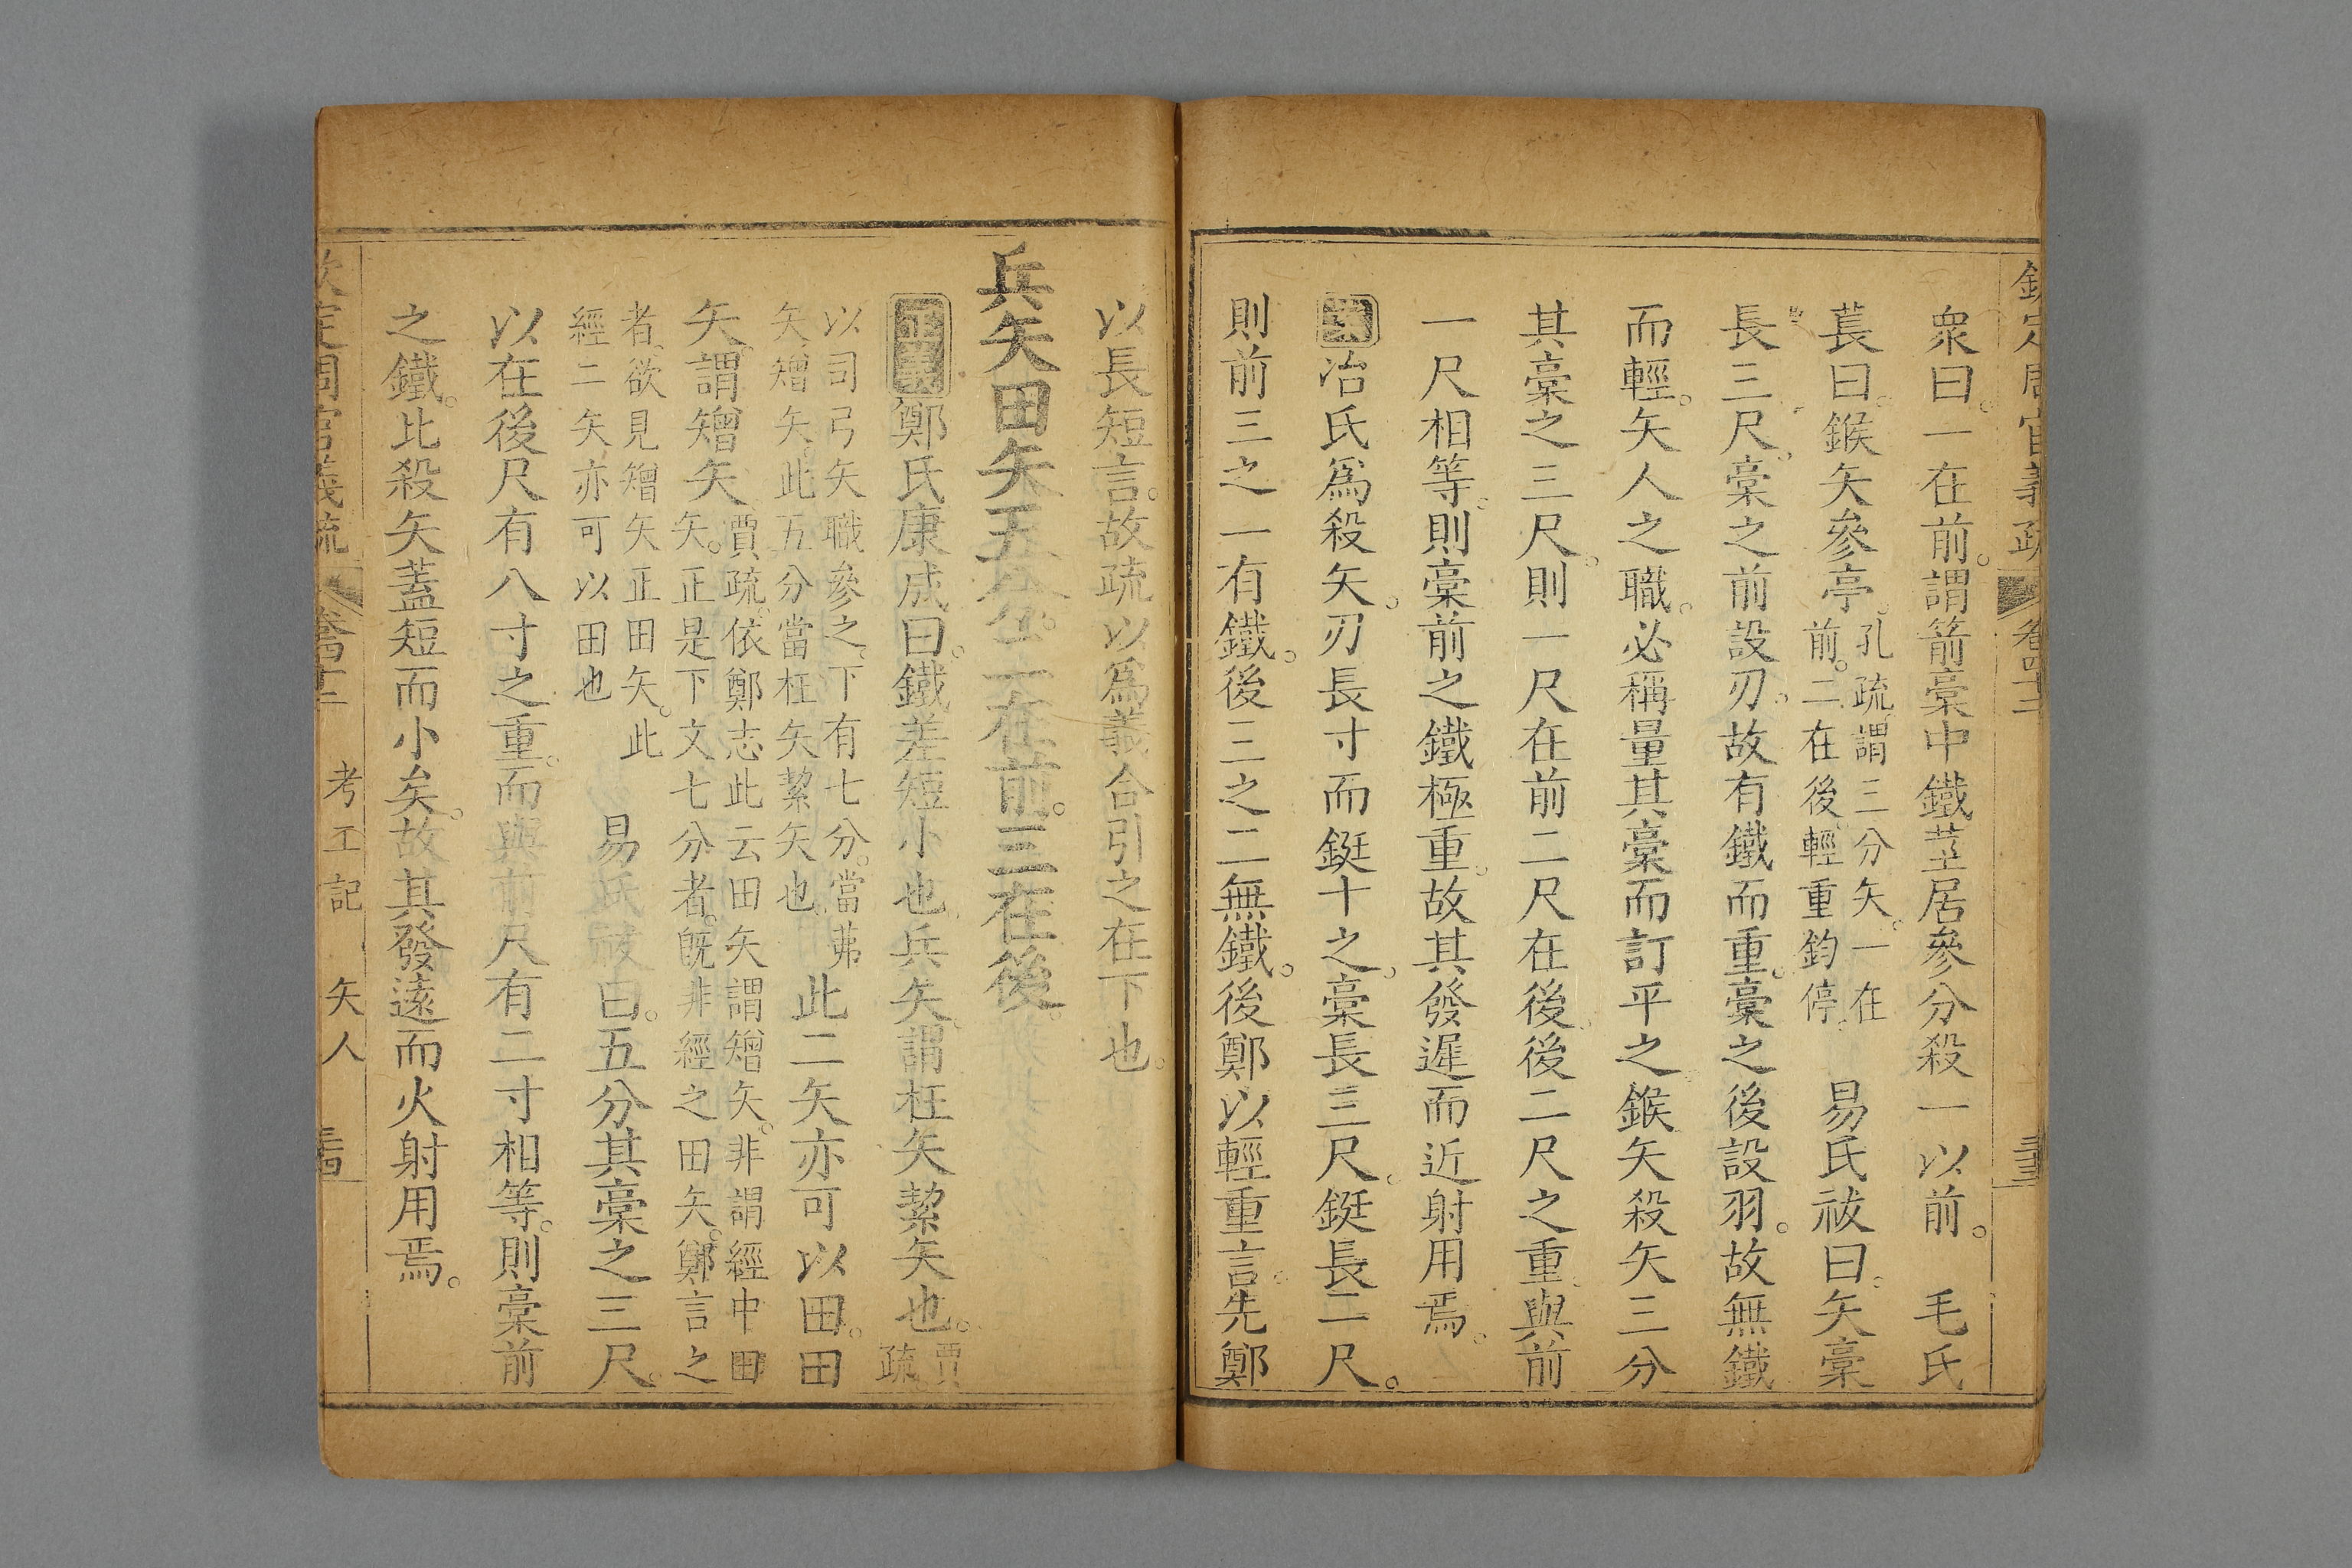 欽定周官義疏 卷四十二
衆曰。一在前。謂箭槀中鐵莖居參分殺一以前。 毛氏
萇曰。鍭矢參亭。孔疏謂三分矢。一在
前。二在後。輕重鈞停。 易氏祓曰。矢槀
長三尺。槀之前設刃。故有鐵而重。槀之後設羽。故無鐵
而輕。矢人之職。必稱量其槀而訂平之。鍭矢殺矢三分
其槀之三尺。則一尺在前二尺在後。後二尺之重。與前
一尺相等。則槀前之鐵極重。故其發遲而近射用焉。
冶氏爲殺矢。刃長寸而鋌十之。槀長三尺。鋌長二尺。
則前三之一有鐵。後三之二無鐵。後鄭以輕重言。先鄭
以長短言。故疏以爲義合引之在下也。
兵矢田矢五分二在前。三在後。
正義鄭氏康成曰。鐵差短小也。兵矢。謂枉矢絜矢也。賈
疏。
以司弓矢職參之。下有七分。當茀
矢矰矢。此五分當枉矢絜矢也。此二矢亦可以田。田
矢。謂矰矢。賈疏。依鄭志此云田矢謂矰矢。非謂經中田
矢。正是下文七分者。旣非經之田矢。鄭言之
者。欲見矰矢正田矢。此
經二矢亦可以田也 易氏祓曰。五分其槀之三尺。
以在後尺有八寸之重。而與前尺有二寸相等。則槀前
之鐵。比殺矢蓋短而小矣。故其發遠而火射用焉。
欽定周官義疏 卷四十二 考工記 矢人